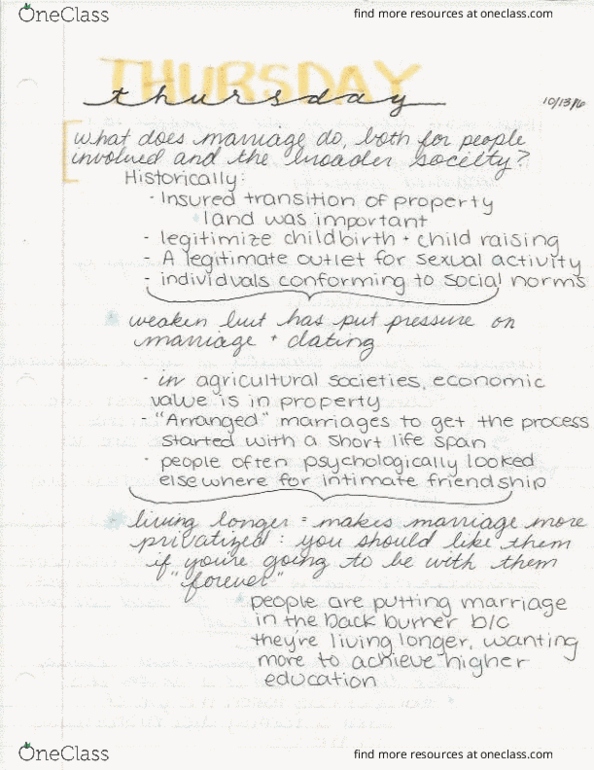 OneClass
find more resources at oneclass.com
THURSDAY
thursday
10/13/16
what does marriage do, both for people
involved and the broader society?
Historically:
- Insured transition of property
land was important
- legitimize childbirth + child raising
- A legitimate outlet for sexual activity
- individuals conforming to social norms
* weaken but has put pressure on
marriage + dating
- in agricultural societies, economic
value is in property
- "Arranged" marriages to get the process
started with a short life span
- people often psychologically looked
elsewhere for intimate friendship
* living longer = makes marriage more
privatized: you should like them
if you're going to be with them
"forever"
people are putting marriage
in the back burner b/c
they're living longer, wanting
more to achieve higher
education
OneClass
find more resources at oneclass.com